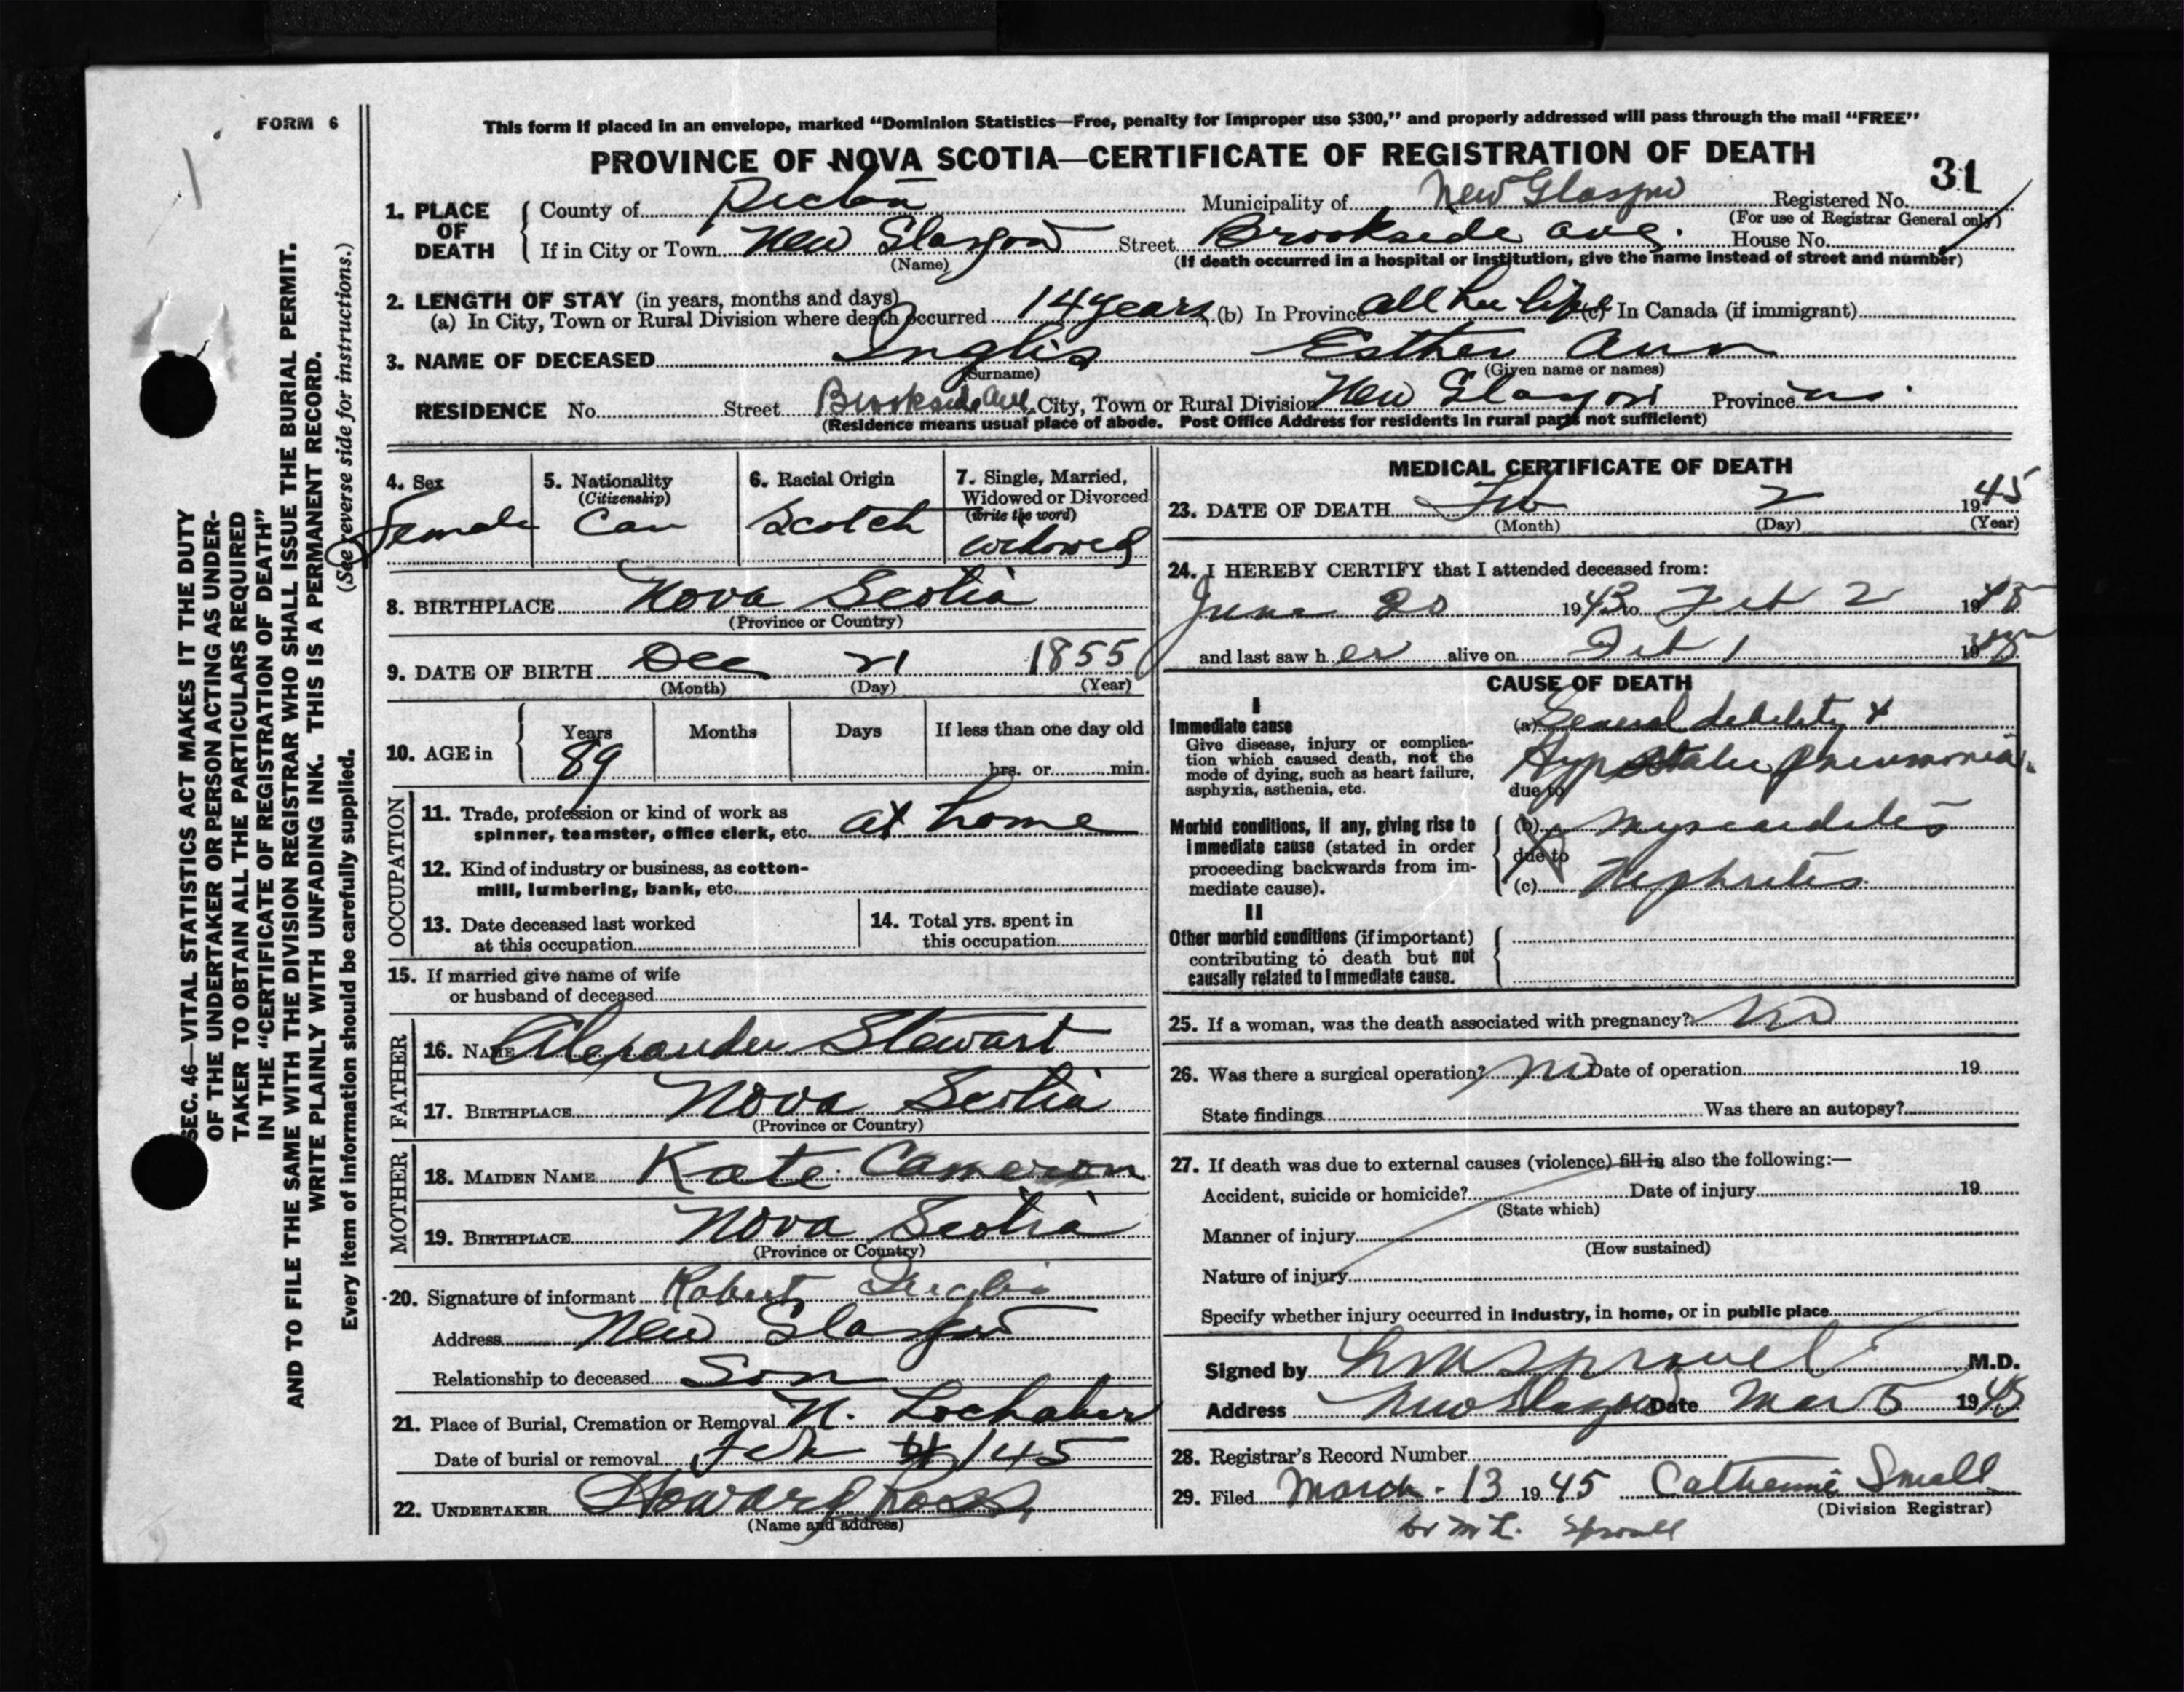 FORM 6
This form if placed in an envelope, marked “Dominion Statistics—Free, penalty for improper use $300,” and properly addressed will pass through the mail “FREE”
PROVINCE OF NOVA SCOTIA—CERTIFICATE OF REGISTRATION OF DEATH
31
1. PLACE OF DEATH { County of Pictou Municipality of New Glasgow Registered No.
(For use of Registrar General only)
If in City or Town New Glasgow Street Brookside Ave. House No.
(Name) (If death occurred in a hospital or institution, give the name instead of street and number)
2. LENGTH OF STAY (in years, months and days)
(a) In City, Town or Rural Division where death occurred 14 years (b) In Province all her life (c) In Canada (if immigrant)
3. NAME OF DECEASED Inglis Esther Ann
(Surname) (Given name or names)
RESIDENCE No. Street Brookside Ave. City, Town or Rural Division New Glasgow Province n.s.
(Residence means usual place of abode. Post Office Address for residents in rural parts not sufficient)
4. Sex
Female
5. Nationality
(Citizenship)
Can
6. Racial Origin
Scotch
7. Single, Married,
Widowed or Divorced
(Write the word)
widowed
8. BIRTHPLACE Nova Scotia
(Province or Country)
9. DATE OF BIRTH Dec 21 1855
(Month) (Day) (Year)
10. AGE in { Years Months Days If less than one day old
89 hrs. or min.
OCCUPATION
11. Trade, profession or kind of work as
spinner, teamster, office clerk, etc. at home
12. Kind of industry or business, as cotton-
mill, lumbering, bank, etc.
13. Date deceased last worked
at this occupation
14. Total yrs. spent in
this occupation
15. If married give name of wife
or husband of deceased
FATHER
16. NAME Alexander Stewart
17. BIRTHPLACE Nova Scotia
(Province or Country)
MOTHER
18. MAIDEN NAME Kate Cameron
19. BIRTHPLACE Nova Scotia
(Province or Country)
20. Signature of informant Robert Inglis
Address New Glasgow
Relationship to deceased Son
21. Place of Burial, Cremation or Removal N. Lochaber
Date of burial or removal Feb 4/45
22. UNDERTAKER Howard Ross
(Name and address)
MEDICAL CERTIFICATE OF DEATH
23. DATE OF DEATH Feb 2 1945
(Month) (Day) (Year)
24. I HEREBY CERTIFY that I attended deceased from:
June 20 1943 to Feb 2 1945
and last saw her alive on Feb 1 1945
CAUSE OF DEATH
I
Immediate cause
Give disease, injury or complica-
tion which caused death, not the
mode of dying, such as heart failure,
asphyxia, asthenia, etc.
(a) General debility &
Hypostatic Pneumonia
due to
Morbid conditions, if any, giving rise to
immediate cause (stated in order
proceeding backwards from im-
mediate cause).
(b) Myocarditis
due to
(c) Nephritis
II
Other morbid conditions (if important)
contributing to death but not
causally related to immediate cause.
25. If a woman, was the death associated with pregnancy? No
26. Was there a surgical operation? No Date of operation 19
State findings Was there an autopsy?
27. If death was due to external causes (violence) fill in also the following:—
Accident, suicide or homicide? Date of injury 19
(State which)
Manner of injury
(How sustained)
Nature of injury
Specify whether injury occurred in industry, in home, or in public place
Signed by Sproull M.D.
Address New Glasgow Date Mar 5 1945
28. Registrar's Record Number
29. Filed March 13 1945 Catherine Small
(Division Registrar)
Dr M L. Sproull
SEC. 46—VITAL STATISTICS ACT MAKES IT THE DUTY
OF THE UNDERTAKER OR PERSON ACTING AS UNDER-
TAKER TO OBTAIN ALL THE PARTICULARS REQUIRED
IN THE “CERTIFICATE OF REGISTRATION OF DEATH”
AND TO FILE THE SAME WITH THE DIVISION REGISTRAR WHO SHALL ISSUE THE BURIAL PERMIT.
WRITE PLAINLY WITH UNFADING INK. THIS IS A PERMANENT RECORD.
Every item of information should be carefully supplied. (See reverse side for instructions.)